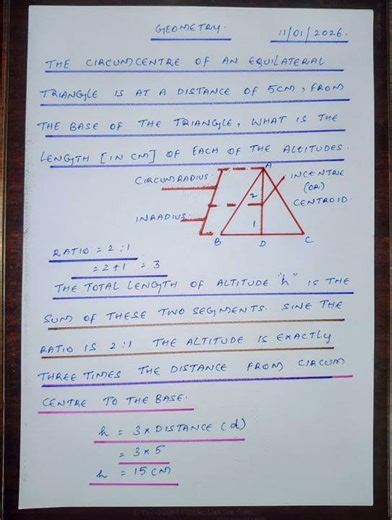 GEOMETRY.
11/01/2026.
THE CIRCUMCENTRE OF AN EQUILATERAL
TRIANGLE IS AT A DISTANCE OF 5CM, FROM
THE BASE OF THE TRIANGLE, WHAT IS THE
LENGTH [IN CM] OF EACH OF THE ALTITUDES.
A
CIRCUMRADIUS
INCENTRE
(OR)
CENTROID.
2
INRADIUS
1
B D C
RATIO = 2:1
= 2+1 = 3
THE TOTAL LENGTH OF ALTITUDE "h" IS THE
SUM OF THESE TWO SEGMENTS. SINE THE
RATIO IS 2:1 THE ALTITUDE IS EXACTLY
THREE TIMES THE DISTANCE FROM CIRCUM
CENTRE TO THE BASE.
h = 3 × DISTANCE (d)
= 3 × 5
h = 15 CM